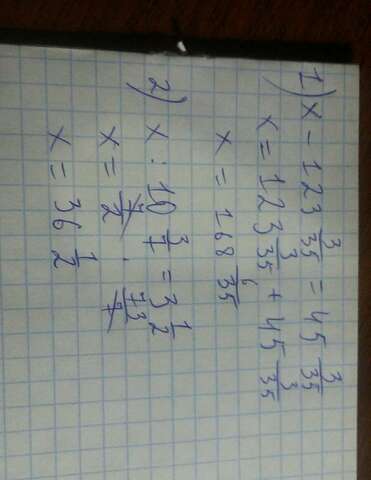 1) x - 123 3/35 = 45 3/35
x = 123 3/35 + 45 3/35
x = 168 6/35
2) x : 10 3/7 = 3 1/2
x = 7/2 · 73/7
x = 36 1/2